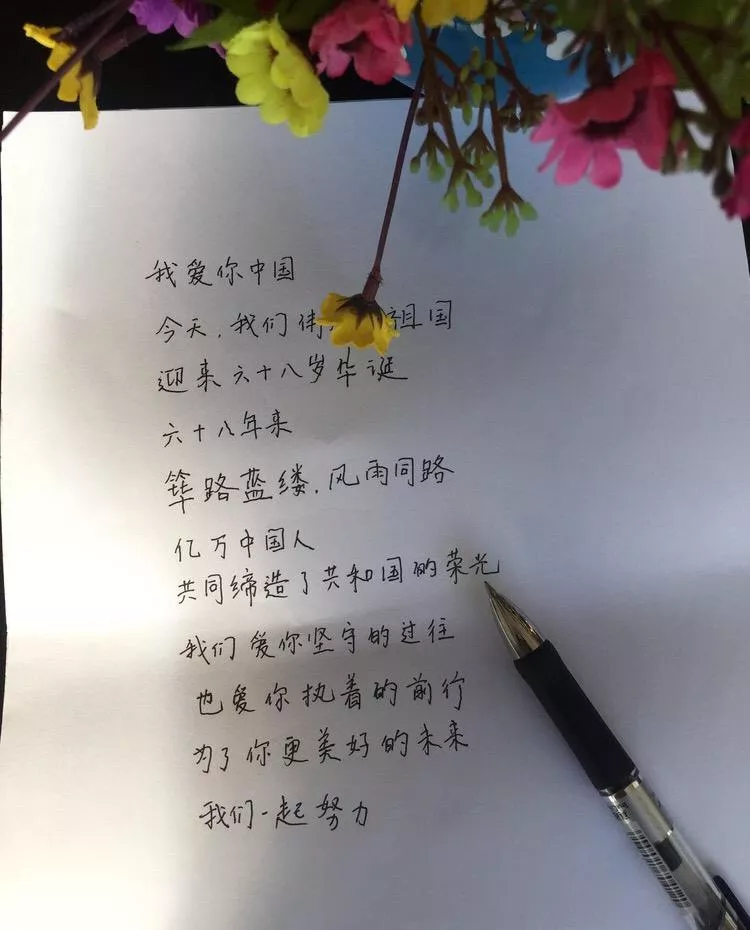 我爱你中国
今天,我们 祖国
迎来六十八岁华诞
六十八年来
筚路蓝缕,风雨同路
亿万中国人
共同缔造了共和国的荣光
我们爱你坚守的过往
也爱你执着的前行
为了你更美好的未来
我们一起努力